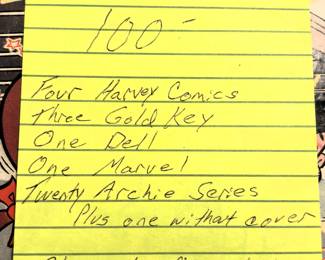 100-
Four Harvey Comics
three Gold Key
One Dell
One Marvel
Twenty Archie Series
Plus one without cover